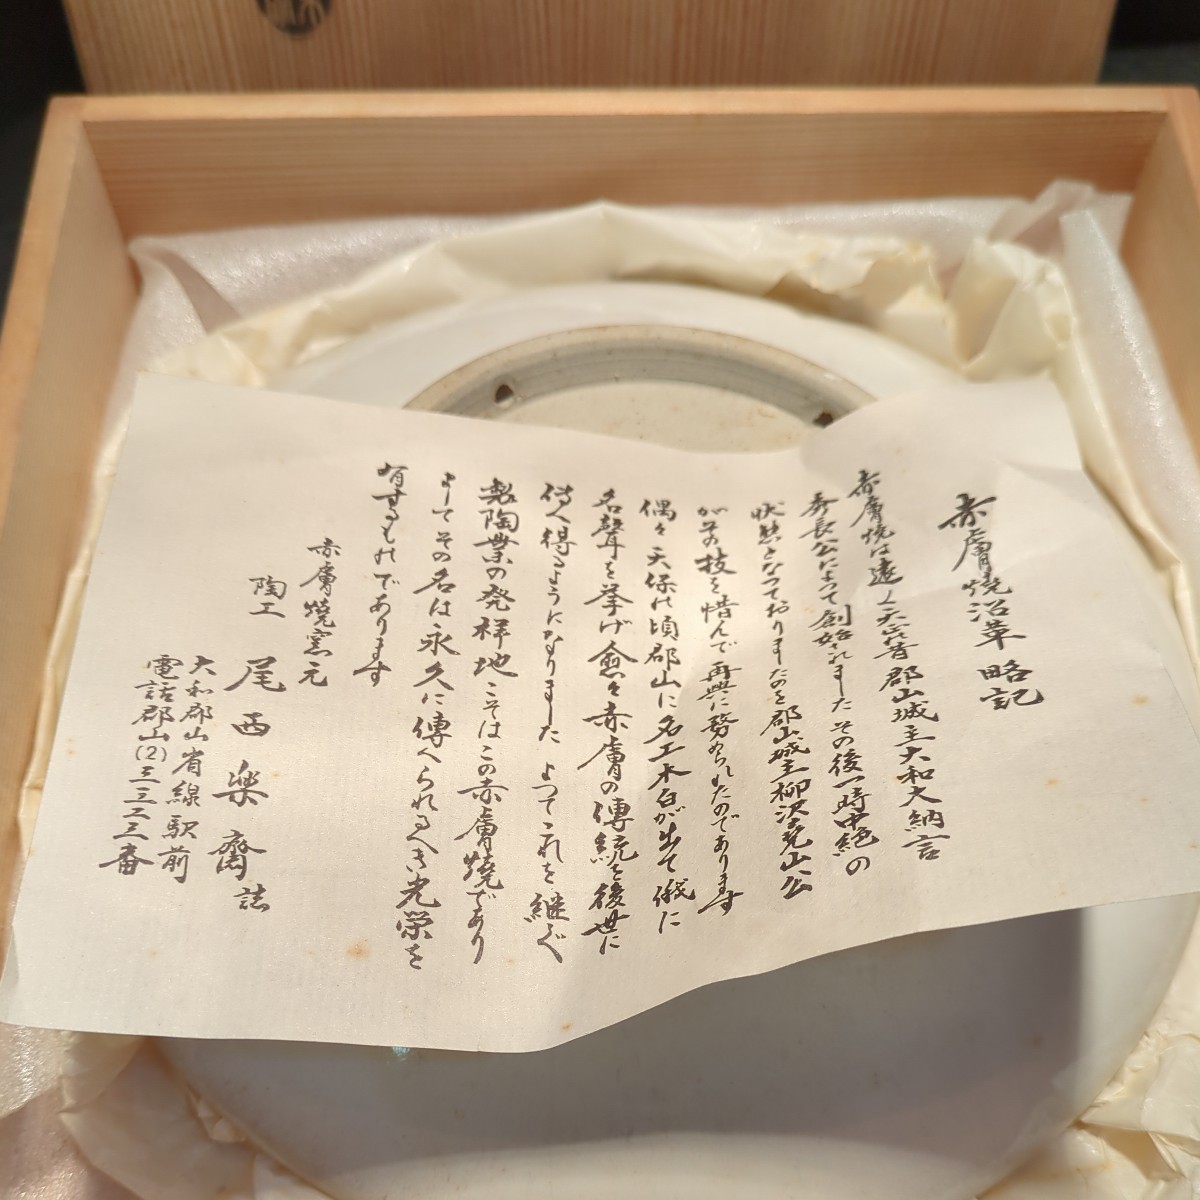 赤膚焼沿革略記
赤膚焼は遠く天正の昔郡山城主大和大納言
秀長公によって創始されました その後一時中絶の
状態となっておりましたのを郡山城主柳沢堯山公
がその技を惜んで再興に努められたのであります
偶々天保の頃郡山に名工木白が出て俄に
名聲を挙げ愈々赤膚の傳統を後世に
傳へ得るようになりました よつてこれを継ぐ
製陶業の発祥地こそはこの赤膚焼であり
よしてその名は永久に傳へられるべき光栄を
有するものであります
赤膚焼窯元
陶工 尾西楽齋 誌
大和郡山省線駅前
電話郡山(2)三三二三番